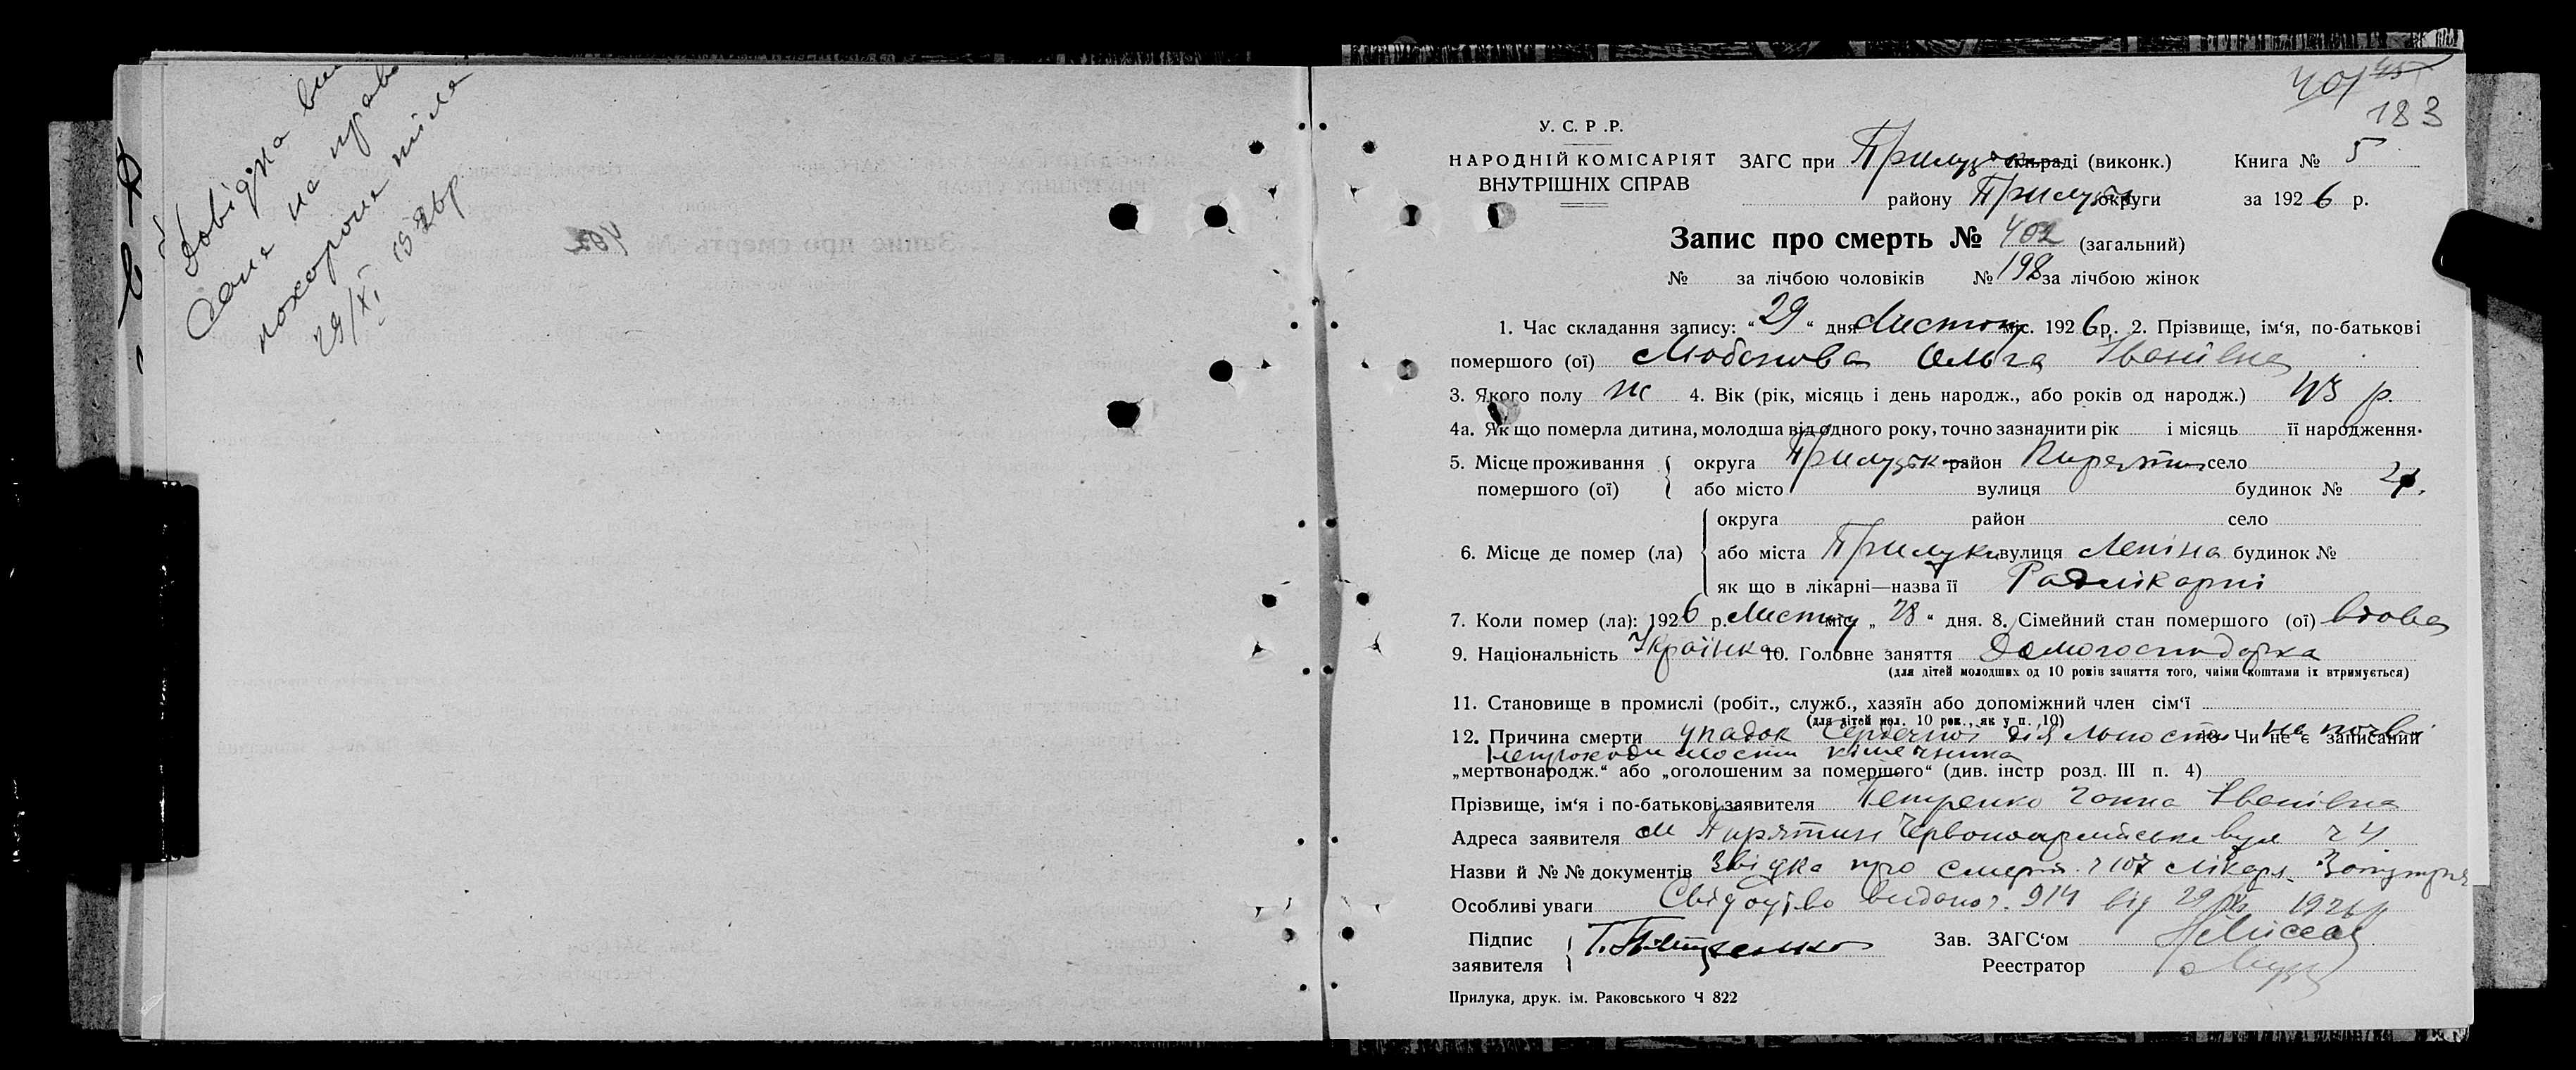 Довідка ви
дана на право
похорона тіла
29/XI 1926р
183
У. С. Р .Р.
НАРОДНІЙ КОМІСАРІЯТ
ВНУТРІШНІХ СПРАВ
ЗАГС при Прилуцьк раді (виконк.) Книга № 5
району Прилуки округи за 1926 р.
Запис про смерть № 402 (загальний)
№ за лічбою чоловіків № 198 за лічбою жінок
1. Час складання запису: "29" дня Листоп міс. 1926 р. 2. Прізвище, ім'я, по-батькові
помершого (ої) Ольга Іванівна
3. Якого полу ж 4. Вік (рік, місяць і день народж., або років од народж.) 43 р.
4а. Як що померла дитина, молодша від одного року, точно зазначити рік і місяць її народження.
5. Місце проживання округа Прилуцьк район Пирятин село
помершого (ої) або місто вулиця будинок №
округа район село
6. Місце де помер (ла) або міста Прилуки вулиця Леніна будинок №
як що в лікарні—назва її Радлікарні
7. Коли помер (ла): 1926 р. Листоп міс. „28" дня. 8. Сімейний стан помершого (ої) вдова
9. Національність Українка 10. Головне заняття Домогосподарка
(для дітей молодших од 10 років заняття того, чиїми коштами їх втримується)
11. Становище в промислі (робіт., служб., хазяїн або допоміжний член сім'ї
(для дітей мол. 10 рок., як у п. 10)
12. Причина смерти упадок сердечної діяльности на почві Чи не є записаний
непроходимости кішечника
„мертвонародж." або „оголошеним за помершого" (див. інстр розд. III п. 4)
Прізвище, ім'я і по-батькові заявителя Петренко Ганна Іванівна
Адреса заявителя м Пирятин Червоноармійська вул ч 4
Назви й №№ документів Звідка про смерть ч 107 лікаря
Особливі уваги Свідоцтво видано ч. 914 від 29/XI 1926р
Підпис
заявителя Г. Петренко Зав. ЗАГС'ом
Реестратор
Прилука, друк. ім. Раковського Ч 822